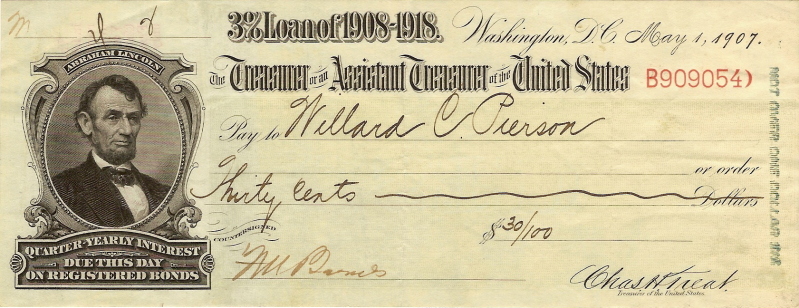 3% Loan of 1908-1918.
Washington, D.C. May 1, 1907.
The Treasurer or an Assistant Treasurer of the United States
B909054
ABRAHAM LINCOLN
Pay to Willard C. Pierson
or order
Thirty Cents Dollars
$ 30/100
COUNTERSIGNED
QUARTER-YEARLY INTEREST
DUE THIS DAY
ON REGISTERED BONDS
Chas H Treat
Treasurer of the United States.
NOT OVER ONE DOLLAR